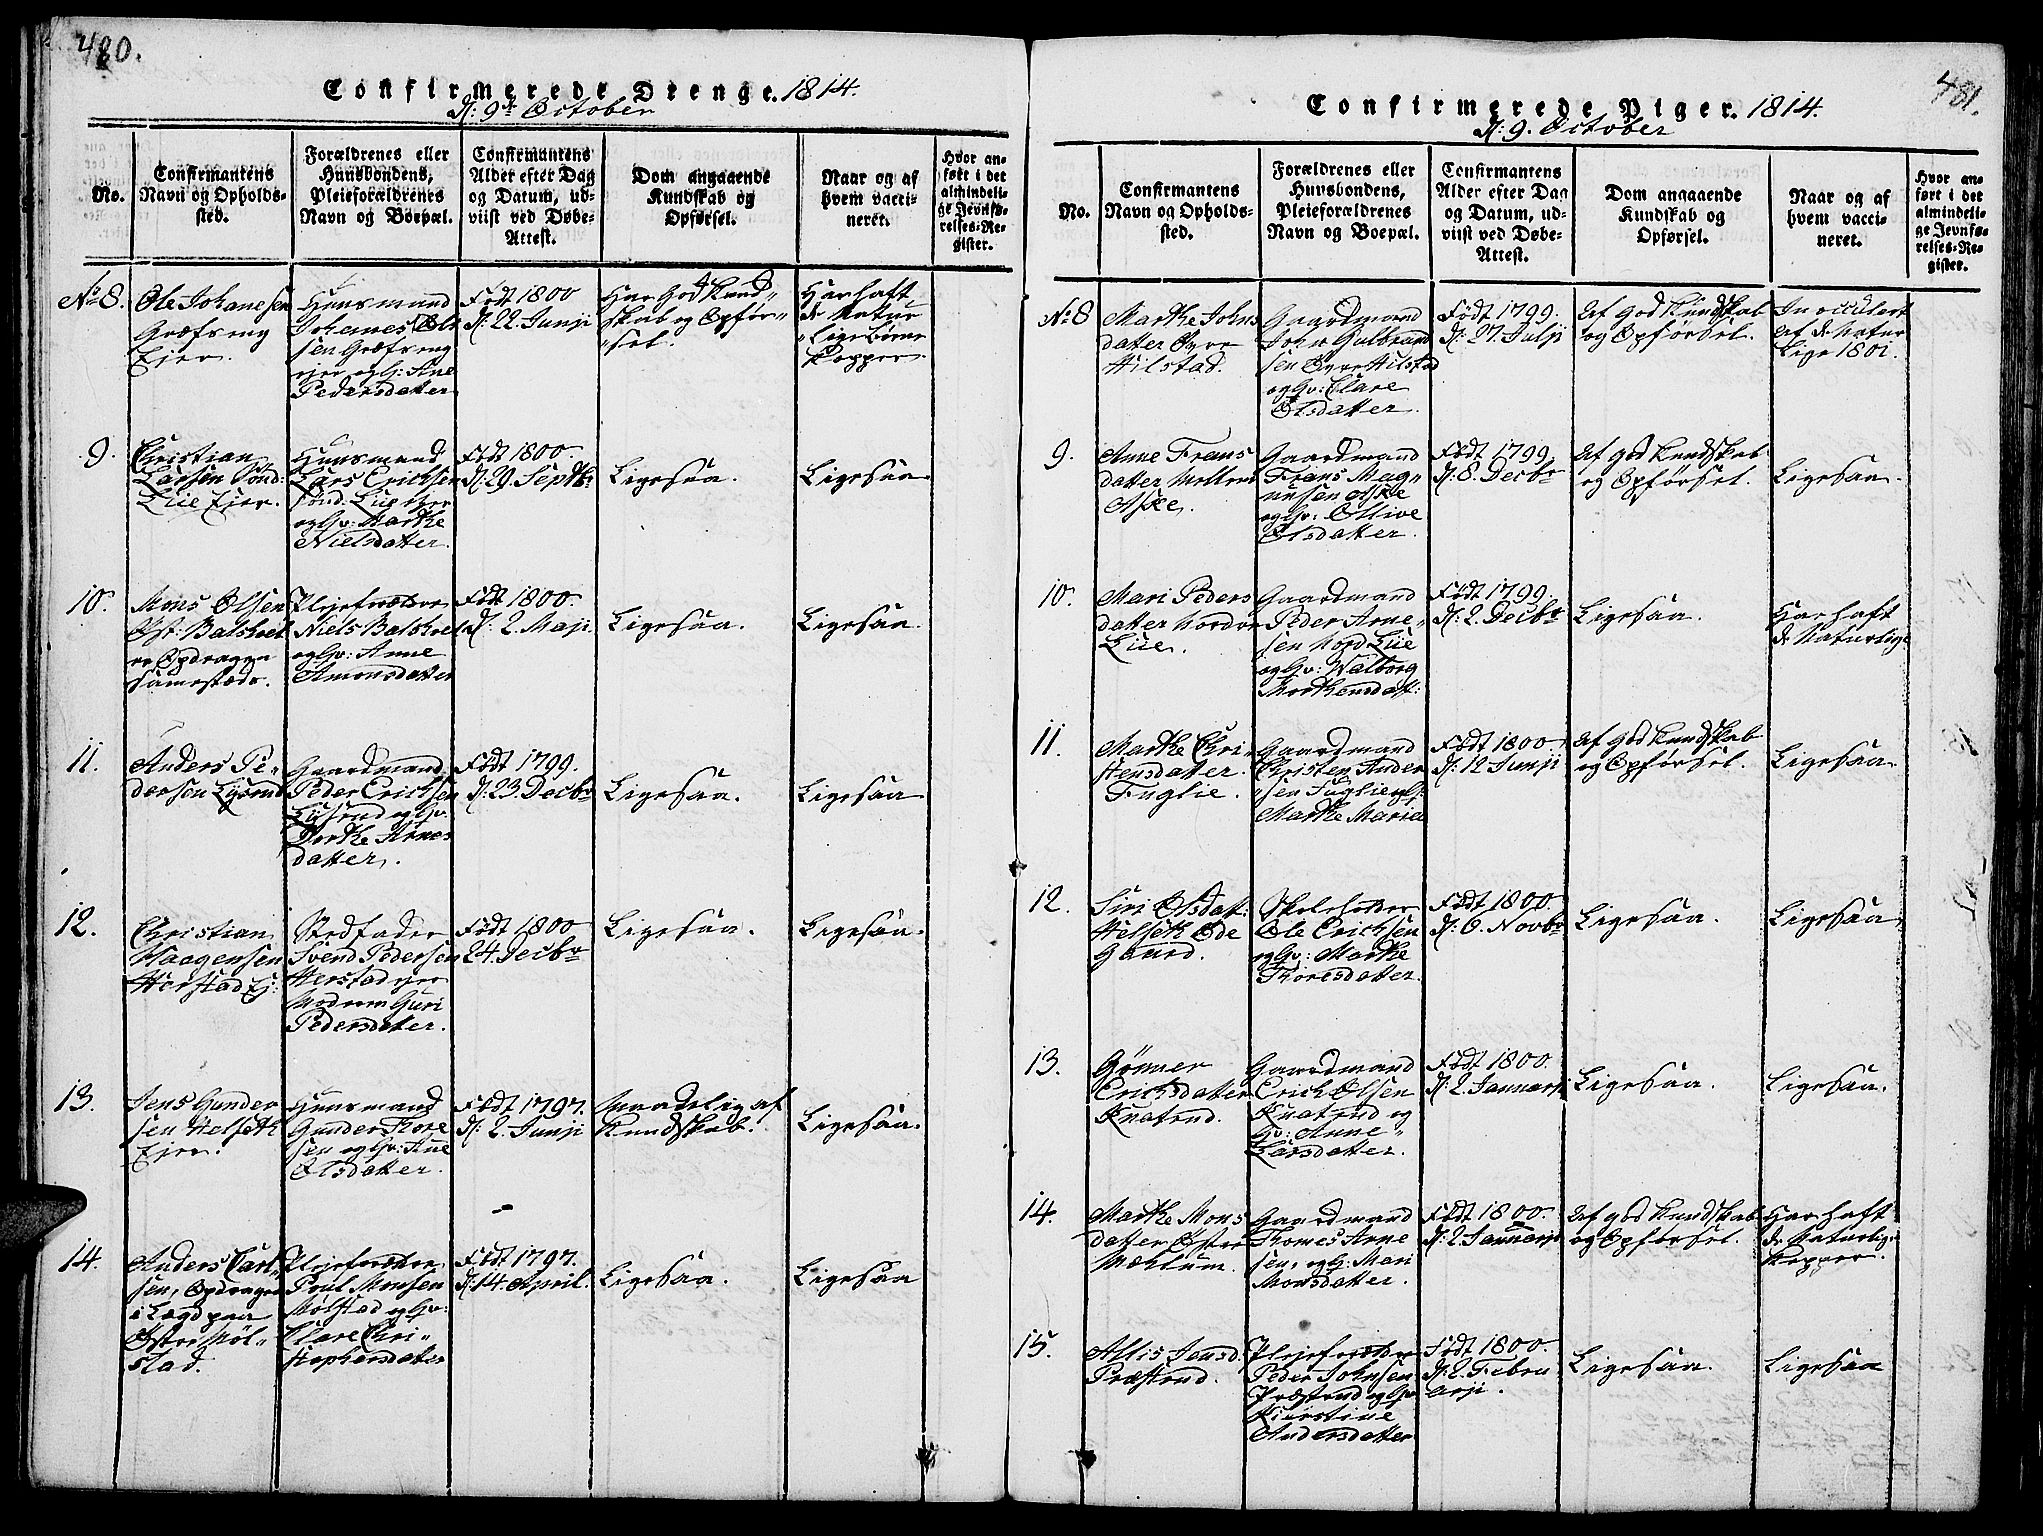 480.
Confirmerede Drenge. 1814.
D: 9de October
No.
Confirmantens
Navn og Opholds-
sted.
Forældrenes eller
Huusbondens,
Pleieforældrenes
Navn og Boepæl.
Confirmantens
Alder efter Dag
og Datum, ud-
viist ved Døbe-
Attest.
Dom angaaende
Kundskab og
Opførsel.
Naar og af
hvem vacci-
neret.
Hvor an-
ført i det
almindeli-
ge Jevnfø-
relses-Re-
gister.
No 8.
Ole Johanesen
Græfseng
Ejer.
Huusmand
Johanes Ol-
sen Græfseng
ejer og G: Ane
Pedersdatter
Født 1800
D: 22 Junji
Har God Kund-
skab og Opfør-
sel.
Har haft
de Natur-
lige Børne
Kopper.
9.
Christian
Larsen Sønd:
Liie Ejer.
Huusmand
Lars Erichsen
Sønd: Liie Ejer
og Gv: Marthe
Nielsdatter.
Født 1800.
D: 29. Septbr
Ligesaa.
Ligesaa.
10.
Mons Olsen
Øst: Balshoel
er Opdragen
sammestæds.
Plejeforældre
Niels Balshoel
og Gv: Anne
Amonsdatter
Født 1800.
D: 2. Maji.
Ligesaa.
Ligesaa.
11.
Anders Pe-
dersen Lysrud
Gaardmand
Peder Erichsen
Lysrud og Gv.
Dorthe Arnes
datter.
Født 1799.
D: 23. Decbr
Ligesaa.
Ligesaa
12.
Christian
Haagensen
Herstad Ej:
Stedfader
Svend Pedersen
Herstad ejer
Moderen Guri
Pedersdatter.
Født 1800
24. Decbr
Ligesaa.
Ligesaa.
13.
Jens Gunder
sen Helseth
Ejer.
Huusmand
Gunder Thore
sen og Gv: Ane
Olsdatter.
Født 1797.
D: 2. Junji
Maadelig af
Kundskab.
Ligesaa.
14.
Anders Carl-
sen, Opdragen
i Lægd paa
Østre Møl-
stad.
Plejeforældre
Poul Monsen
Mølstad og Gv:
Clare Chri-
stophersdatter
Født 1797.
D: 14. April.
Ligesaa.
Ligesaa
481.
Confirmerede Piger. 1814.
D: 9. October
No.
Confirmantens
Navn og Opholds-
sted.
Forældrenes eller
Huusbondens,
Pleieforældrenes
Navn og Boepæl.
Confirmantens
Alder efter Dag
og Datum, ud-
viist ved Døbe-
Attest.
Dom angaaende
Kundskab og
Opførsel.
Naar og af
hvem vacci-
neret.
Hvor an-
ført i det
almindeli-
ge Jevnfø-
relses-Re-
gister.
No 8
Marthe Johns
datter Øvre
Hilstad.
Gaardmand
John Gulbrand
sen Øvre Hilstad
og Gv: Clare
Olsdatter.
Født 1799.
D: 27. Julji
Af God Kundskab
og Opførsel.
Inocculert
af de Natur
lige 1801.
9.
Anne Frans
datter Mellem
Aske.
Gaardmand
Frans Mag-
nusen Aske
og Gv: Ollive
Olsdatter.
Født 1799.
D: 8. Decbr
Af god Kundskab
og Opførsel.
Ligesaa.
10.
Mari Peders
datter Nordre
Liie.
Gaardmand
Peder Arne-
sen Nord Liie
og Gv: Walborg
Morthensdatt:
Født 1799.
D: 2. Decbr
Ligesaa.
Har haft
de Naturlige
11.
Marthe Chri-
stensdatter.
Fuglie.
Gaardmand
Christen Ander
sen Fuglie og G:
Marthe Maria
Født 1800.
D: 12 Junji
Af god Kundskab
og Opførsel.
Ligesaa.
12.
Siri Olsdat:
Helseth Øde
gaard.
Skoleholder
Ole Erichsen
og Gv: Marthe
Thoresdatter.
Født 1800.
D: 6. Novbr
Ligesaa.
Ligesaa
13.
Gønner
Erichsdatter
Knatrud.
Gaardmand
Erich Olsen
Knatrud og
Gv: Anne
Larsdatter.
Født 1800.
D: 2. Januarji
Ligesaa.
Ligesaa.
14.
Marthe Mons
datter Østre
Mæhlum.
Gaardmand
Thomes Arne
sen, og G: Mari
Monsdatter.
Født 1800.
D: 2. Januarji
Af god Kundskab
og Opførsel.
Har haft
de Naturlige
Kopper.
15.
Allis Jensd.
Præstrud.
Plejeforældre
Peder Johnsen
Præstrud og Gv
Kierstine
Andersdatter
Født 1800.
D: 2. Febru
arji.
Ligesaa.
Ligesaa